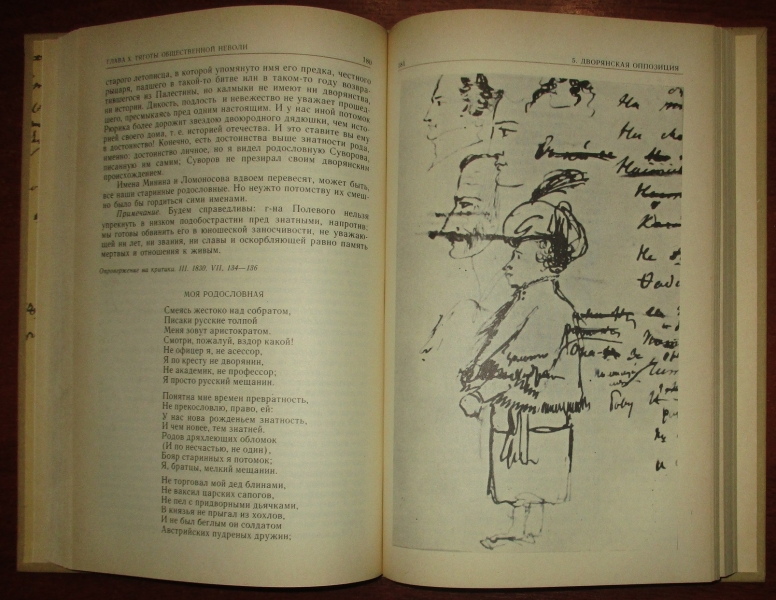 ГЛАВА 5. ТЯГОТЫ ОБЩЕСТВЕННОЙ НЕВОЛИ
старого летописца, в которой упомянуто имя его предка, честного
рыцаря, падшего в такой-то битве или в таком-то году возвра-
тившегося из Палестины, но калмыки не имеют ни дворянства,
ни истории. Дикость, подлость и невежество не уважает прошед-
шего, пресмыкаясь пред одним настоящим. И у нас иной потомок
Рюрика более дорожит звездою двоюродного дядюшки, чем исто-
рией своего дома, т. е. историей отечества. И это ставите вы ему
в достоинство! Конечно, есть достоинства выше знатности рода,
именно: достоинство личное, но я видел родословную Суворова,
писанную им самим; Суворов не презирал своим дворянским
происхождением.
Имена Минина и Ломоносова вдвоем перевесят, может быть,
все наши старинные родословные. Но неужто потомству их смеш-
но было бы гордиться сими именами.
Примечание. Будем справедливы: г-на Полевого нельзя
упрекнуть в низком подобострастии пред знатными, напротив:
мы готовы обвинить его в юношеской заносчивости, не уважаю-
щей ни лет, ни звания, ни славы и оскорбляющей равно память
мертвых и отношения к живым.
Опровержение на критики. III. 1830. VII, 134—136
МОЯ РОДОСЛОВНАЯ
Смеясь жестоко над собратом,
Писаки русские толпой
Меня зовут аристократом.
Смотри, пожалуй, вздор какой!
Не офицер я, не асессор,
Я по кресту не дворянин,
Не академик, не профессор;
Я просто русский мещанин.
Понятна мне времен превратность,
Не прекословлю, право, ей:
У нас нова рожденьем знатность,
И чем новее, тем знатней.
Родов дряхлеющих обломок
(И по несчастью, не один),
Бояр старинных я потомок;
Я, братцы, мелкий мещанин.
Не торговал мой дед блинами,
Не ваксил царских сапогов,
Не пел с придворными дьячками,
В князья не прыгал из хохлов,
И не был беглым он солдатом
Австрийских пудреных дружин;
5. ДВОРЯНСКАЯ ОППОЗИЦИЯ